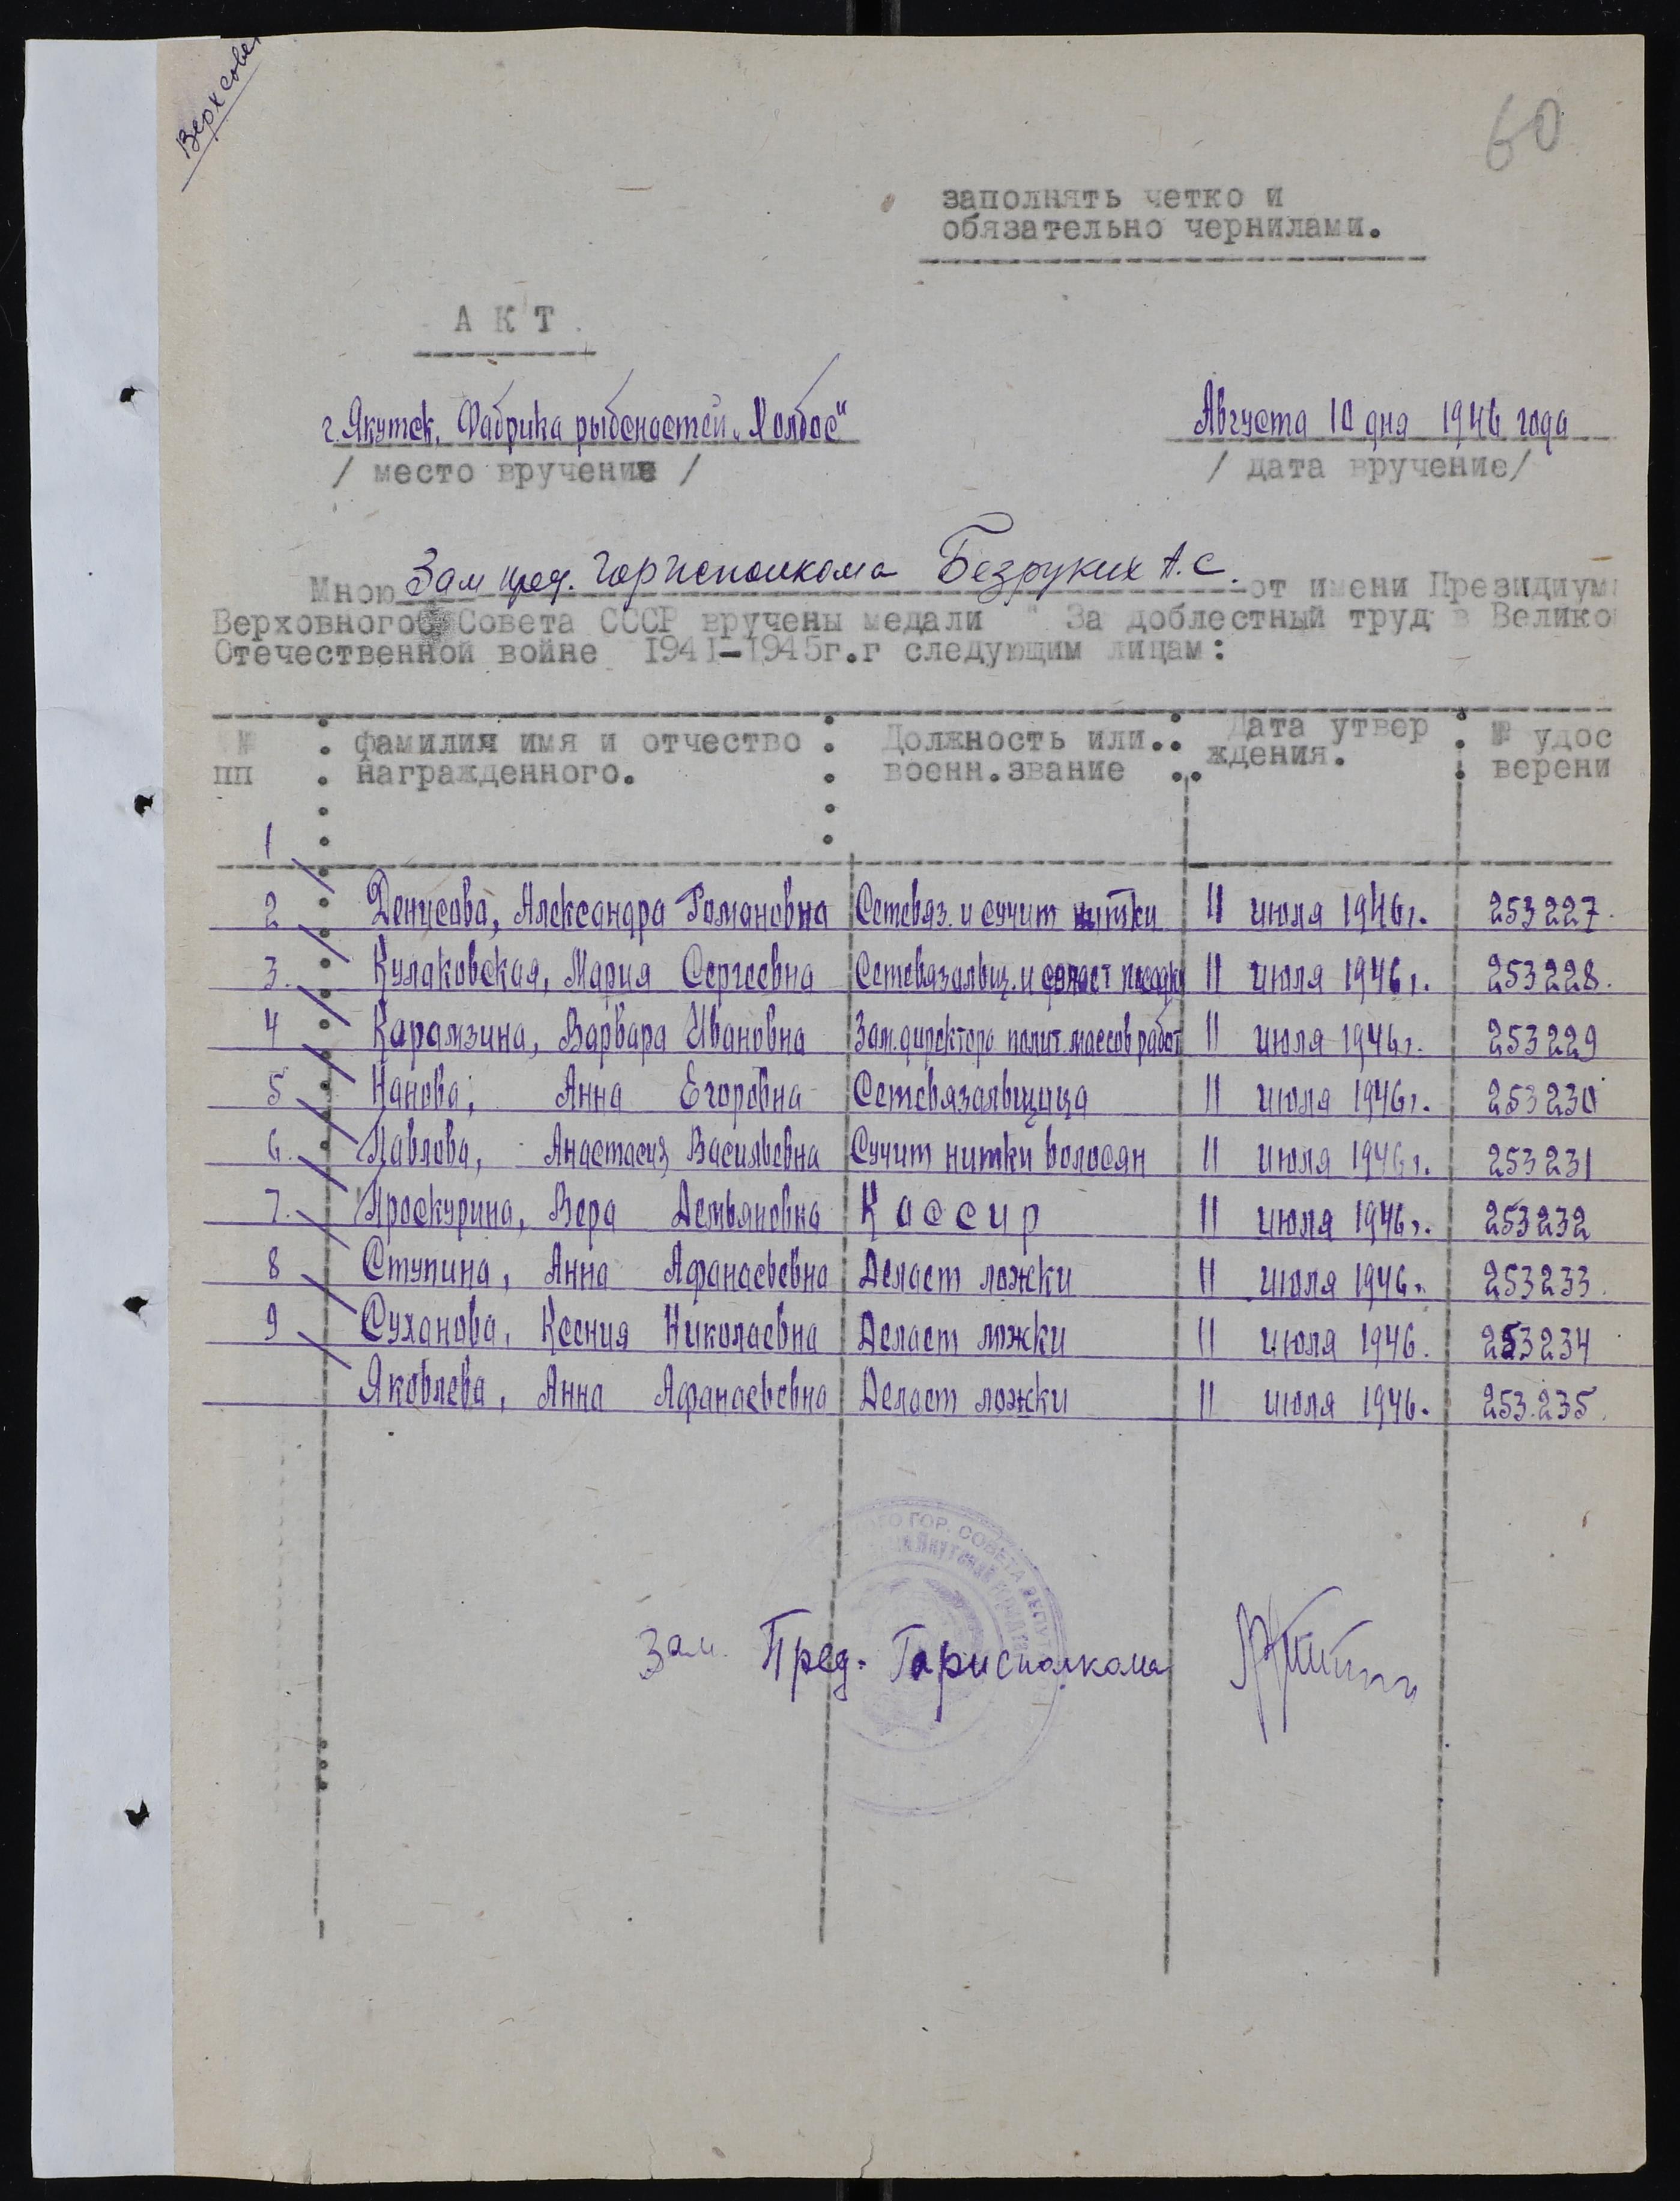 Верхсовет
60
заполнять четко и
обязательно чернилами.
А К Т
г. Якутск, Фабрика рыбснастей „Холбос"
Августа 10 дня 1946 года
/ место вручения /
/ дата вручение/
Мною Зам пред. Горисполкома Безруких А.С. от имени Президиума
Верховного Совета СССР вручены медали " За доблестный труд в Велико
Отечественной войне 1941-1945г.г следующим лицам:
№ пп : фамилия имя и отчество награжденного. : Должность или военн.звание : Дата утверждения. : № удос верени
1
2 Денисова, Александра Романовна Сетевяз. и сучит нитки 11 июля 1946г. 253227.
3. Кулаковская, Мария Сергеевна Сетевязальщ. и 11 июля 1946г. 253228.
4 Карамзина, Варвара Ивановна Зам. директора полит. массов работ 11 июля 1946г. 253229
5 Панова, Анна Егоровна Сетевязальщица 11 июля 1946г. 253230
6. Павлова, Анастасия Васильевна Сучит нитки волосян 11 июля 1946г. 253231
7. Проскурина, Вера Демьяновна Кассир 11 июля 1946г. 253232
8 Ступина, Анна Афанасьевна Делает ложки 11 июля 1946г. 253233.
9 Суханова, Ксения Николаевна Делает ложки 11 июля 1946. 253234
Яковлева, Анна Афанасьевна Делает ложки 11 июля 1946. 253.235.
ГОР. СОВЕТА ДЕПУТ
Зам. Пред. Горисполкома